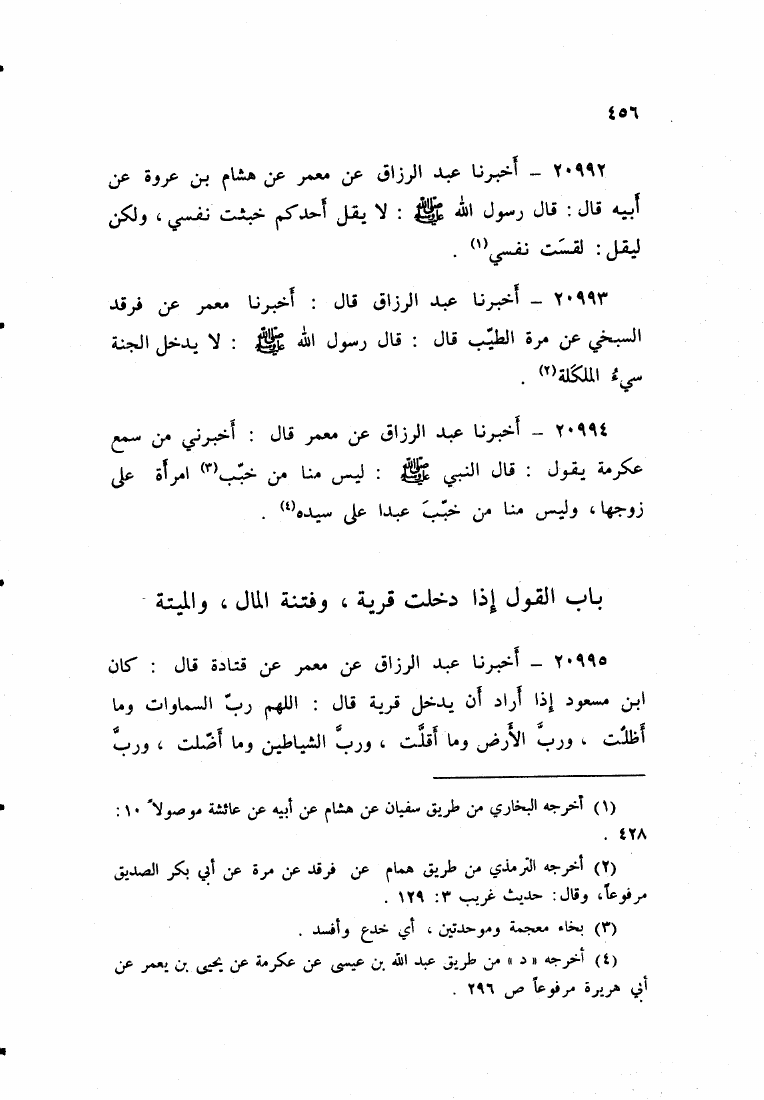 ٤٥٦
٢٠٩٩٢ ـ أخبرنا عبد الرزاق عن معمر عن هشام بن عروة عن
أبيه قال : قال رسول الله ﷺ : لا يقل أحدكم خبثت نفسي ، ولكن
ليقل : لقسَت نفسي(١) .
٢٠٩٩٣ ـ أخبرنا عبد الرزاق قال : أخبرنا معمر عن فرقد
السبخي عن مرة الطيّب قال : قال رسول الله ﷺ : لا يدخل الجنة
سيءُ الملكَلة(٢) .
٢٠٩٩٤ ـ أخبرنا عبد الرزاق عن معمر قال : أخبرني من سمع
عكرمة يقول : قال النبي ﷺ : ليس منا من خبّب(٣) امرأة على
زوجها ، وليس منا من خبّبَ عبدا على سيده(٤) .
باب القول إذا دخلت قرية ، وفتنة المال ، والميتة
٢٠٩٩٥ ـ أخبرنا عبد الرزاق عن معمر عن قتادة قال : كان
ابن مسعود إذا أراد أن يدخل قرية قال : اللهم ربّ السماوات وما
أظلّت ، وربَّ الأرض وما أقلَّت ، وربَّ الشياطين وما أضّلت ، وربَّ
(١) أخرجه البخاري من طريق سفيان عن هشام عن أبيه عن عائشة موصولاً ١٠ :
٤٢٨ .
(٢) أخرجه الترمذي من طريق همام عن فرقد عن مرة عن أبي بكر الصديق
مرفوعاً، وقال : حديث غريب ٣ : ١٢٩ .
(٣) بخاء معجمة وموحدتين ، أي خدع وأفسد .
(٤) أخرجه « د » من طريق عبد الله بن عيسى عن عكرمة عن يحيى بن يعمر عن
أبي هريرة مرفوعاً ص ٢٩٦ .